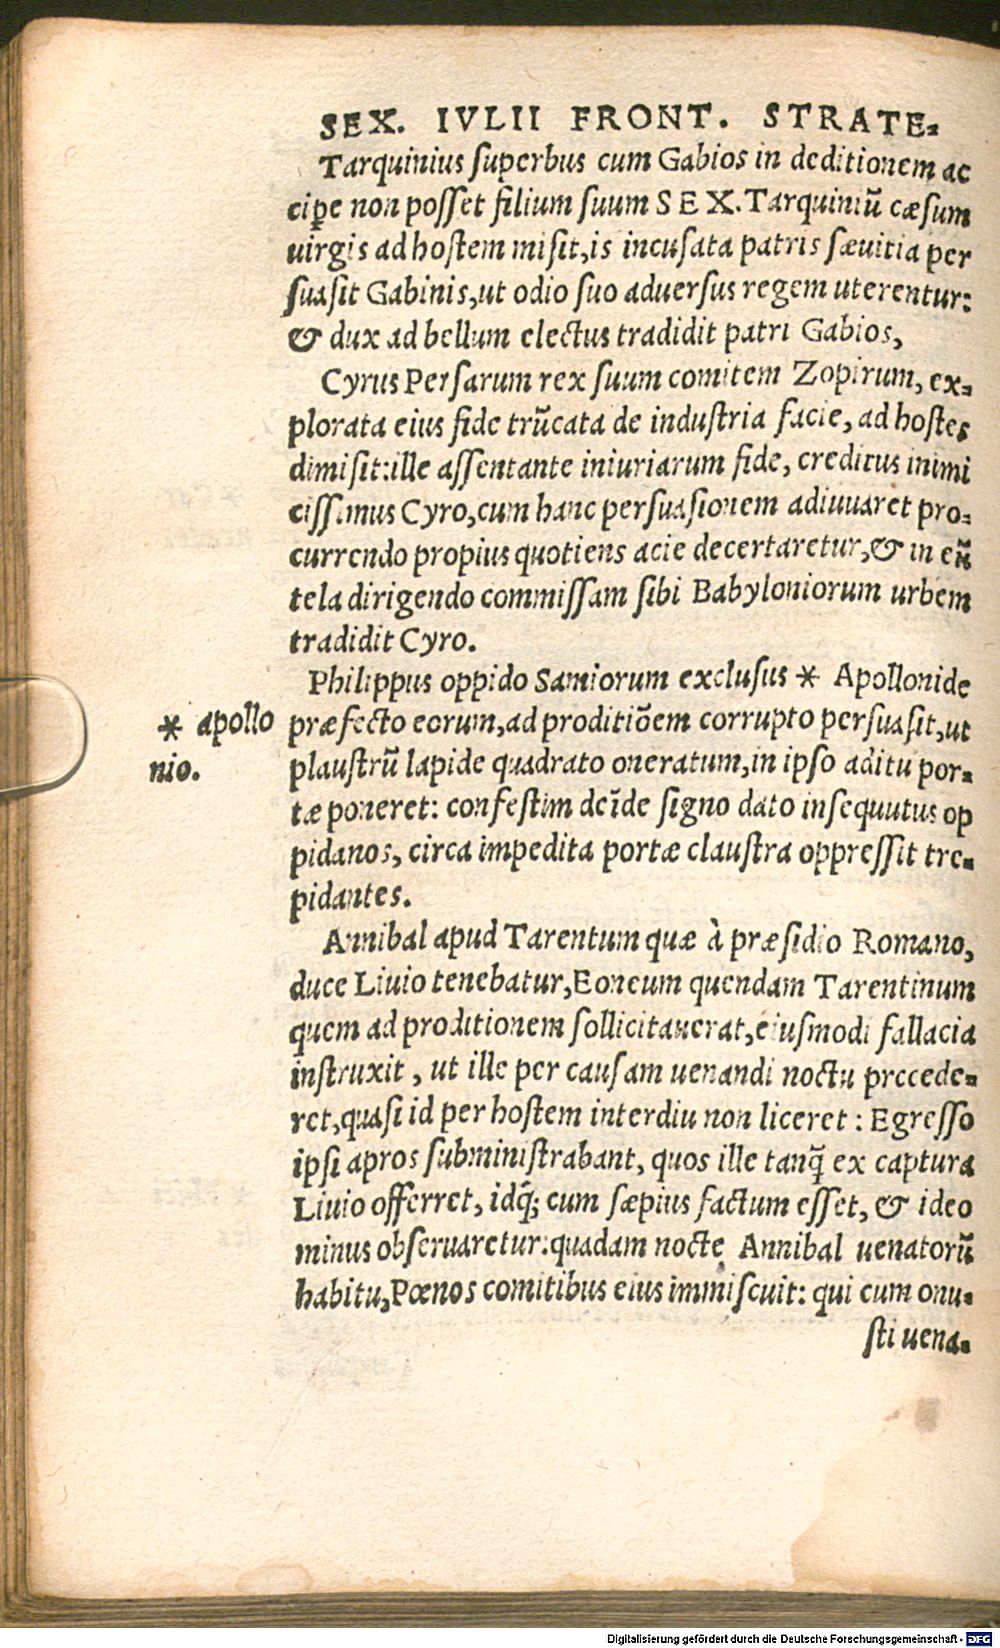 SEX. IVLII FRONT. STRATE-
Tarquinius superbus cum Gabios in deditionem ac
cip̲e non posset filium suum SEX. Tarquiniũ cæsum
uirgis ad hostem misit, is incusata patris sæuitia per
suasit Gabinis, ut odio suo aduersus regem uterentur:
& dux ad bellum electus tradidit patri Gabios,
Cyrus Persarum rex suum comitem Zopirum, ex-
plorata eius fide trũcata de industria facie, ad hostes
dimisit: ille assentante iniuriarum fide, creditus inimi
cissimus Cyro, cum hanc persuasionem adiuuaret pro-
currendo propius quotiens acie decertaretur, & in eũ
tela dirigendo commissam sibi Babyloniorum urbem
tradidit Cyro.
Philippus oppido Samiorum exclusus * Apollonide
præfecto eorum, ad proditiõem corrupto persuasit, ut
* apollo
nio.
plaustrũ lapide quadrato oneratum, in ipso aditu por-
tæ poneret: confestim deĩde signo dato insequutus op
pidanos, circa impedita portæ claustra oppressit tre-
pidantes.
Annibal apud Tarentum quæ à præsidio Romano,
duce Liuio tenebatur, Eoneum quendam Tarentinum
quem ad proditionem sollicitauerat, eiusmodi fallacia
instruxit, ut ille per causam uenandi noctu precede-
ret, quasi id per hostem interdiu non liceret: Egresso
ipsi apros subministrabant, quos ille tanq̃ ex captura
Liuio offerret, idq́; cum sæpius factum esset, & ideo
minus obseruaretur: quadam nocte Annibal uenatorũ
habitu, Pœnos comitibus eius immiscuit: qui cum onu-
sti uena-
Digitalisierung gefördert durch die Deutsche Forschungsgemeinschaft - DFG